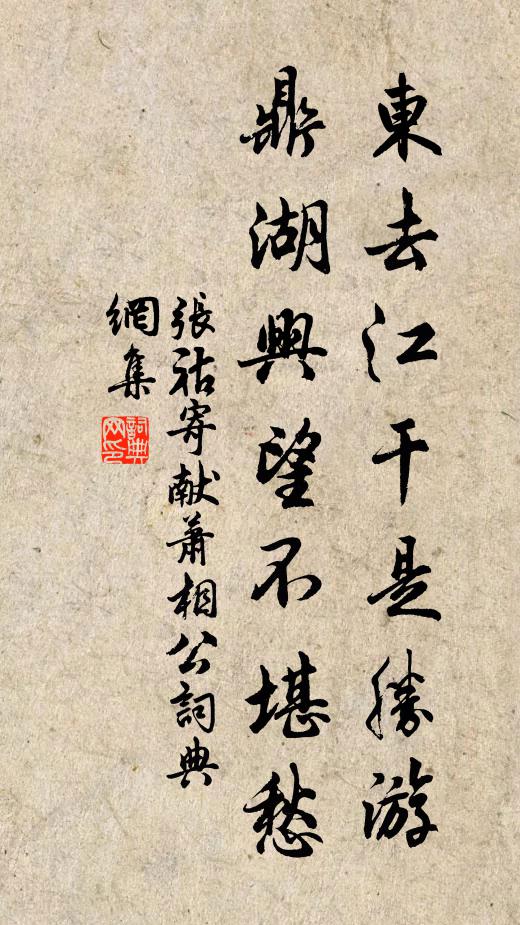 東去江干是勝游
鼎湖興望不堪愁
張祜寄献蕭相公詞典
網集
詞典網印